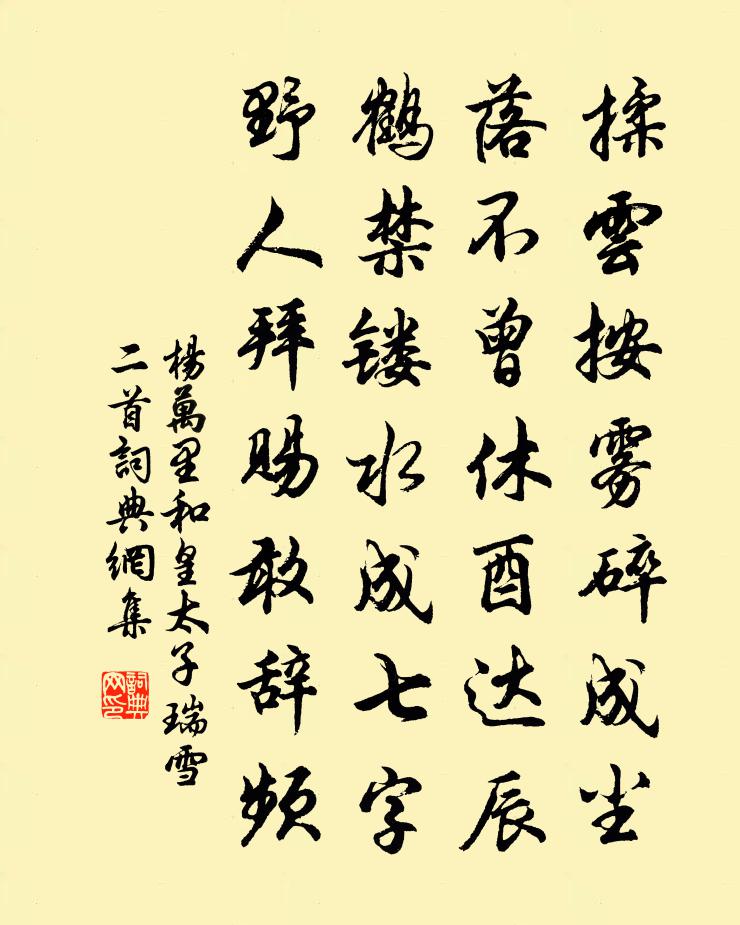 揉雲按雾碎成尘
落不曾休酉达辰
鹤禁镂冰成七字
野人拜賜敢辞频
楊萬里和皇太子瑞雪
二首詞典網集
詞典
网印